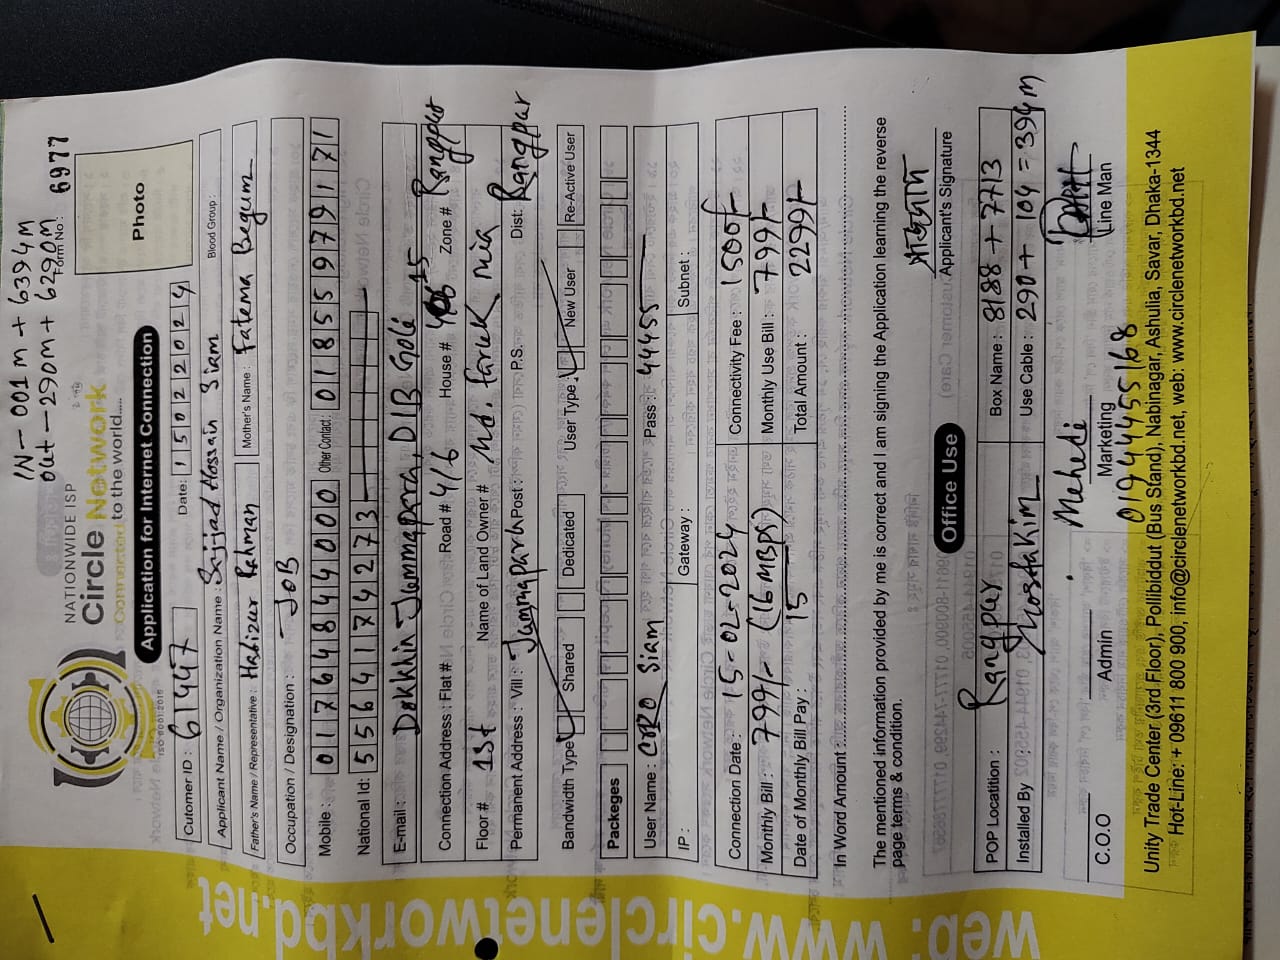 IN - 001 m + 6394 m
out - 290m + 6290m
NATIONWIDE ISP
Circle Network
Connected to the world.....
ISO 9001:2015
Form No: 6977
Application for Internet Connection
Photo
Cutomer ID: 61447
Date: 15022024
Applicant Name / Organization Name: Sajjad Hossain Siam
Blood Group:
Father's Name / Representative: Hafizur Rahman
Mother's Name: Fatema Begum
Occupation / Designation: JOB
Mobile: 01764844000 Other Contact: 01855979171
National Id: 5564174273
E-mail: Dokkhin Jummapara, DIB Gole
Connection Address: Flat # Road # 4/6 House # 15 Zone # Rangpur
Floor # 1st Name of Land Owner # Md. Faruk mia
Permanent Address: Vill: Jummapara Post: P.S. Dist: Rangpur
Bandwidth Type: Shared Dedicated User Type: New User Re-Active User
Packeges
User Name: Siam Pass: 44455
IP: Gateway: Subnet:
Connection Date: 15-02-2024 Connectivity Fee: 1500/-
Monthly Bill: 799/- (16 MBPS) Monthly Use Bill: 799/-
Date of Monthly Bill Pay: 15 Total Amount: 2299/-
In Word Amount:
The mentioned information provided by me is correct and I am signing the Application learning the reverse
page terms & condition.
সাজ্জাদ
Applicant's Signature
Office Use
POP Locatition: Rangpur Box Name: 8188 + 7713
Installed By Mostakim Use Cable: 290 + 104 = 394 m
Mehedi
C.O.O Admin Marketing Line Man
01944455168
Unity Trade Center (3rd Floor), Pollibiddut (Bus Stand), Nabinagar, Ashulia, Savar, Dhaka-1344
Hot-Line: + 09611 800 900, info@circlenetworkbd.net, web: www.circlenetworkbd.net
web: www.circlenetworkbd.net